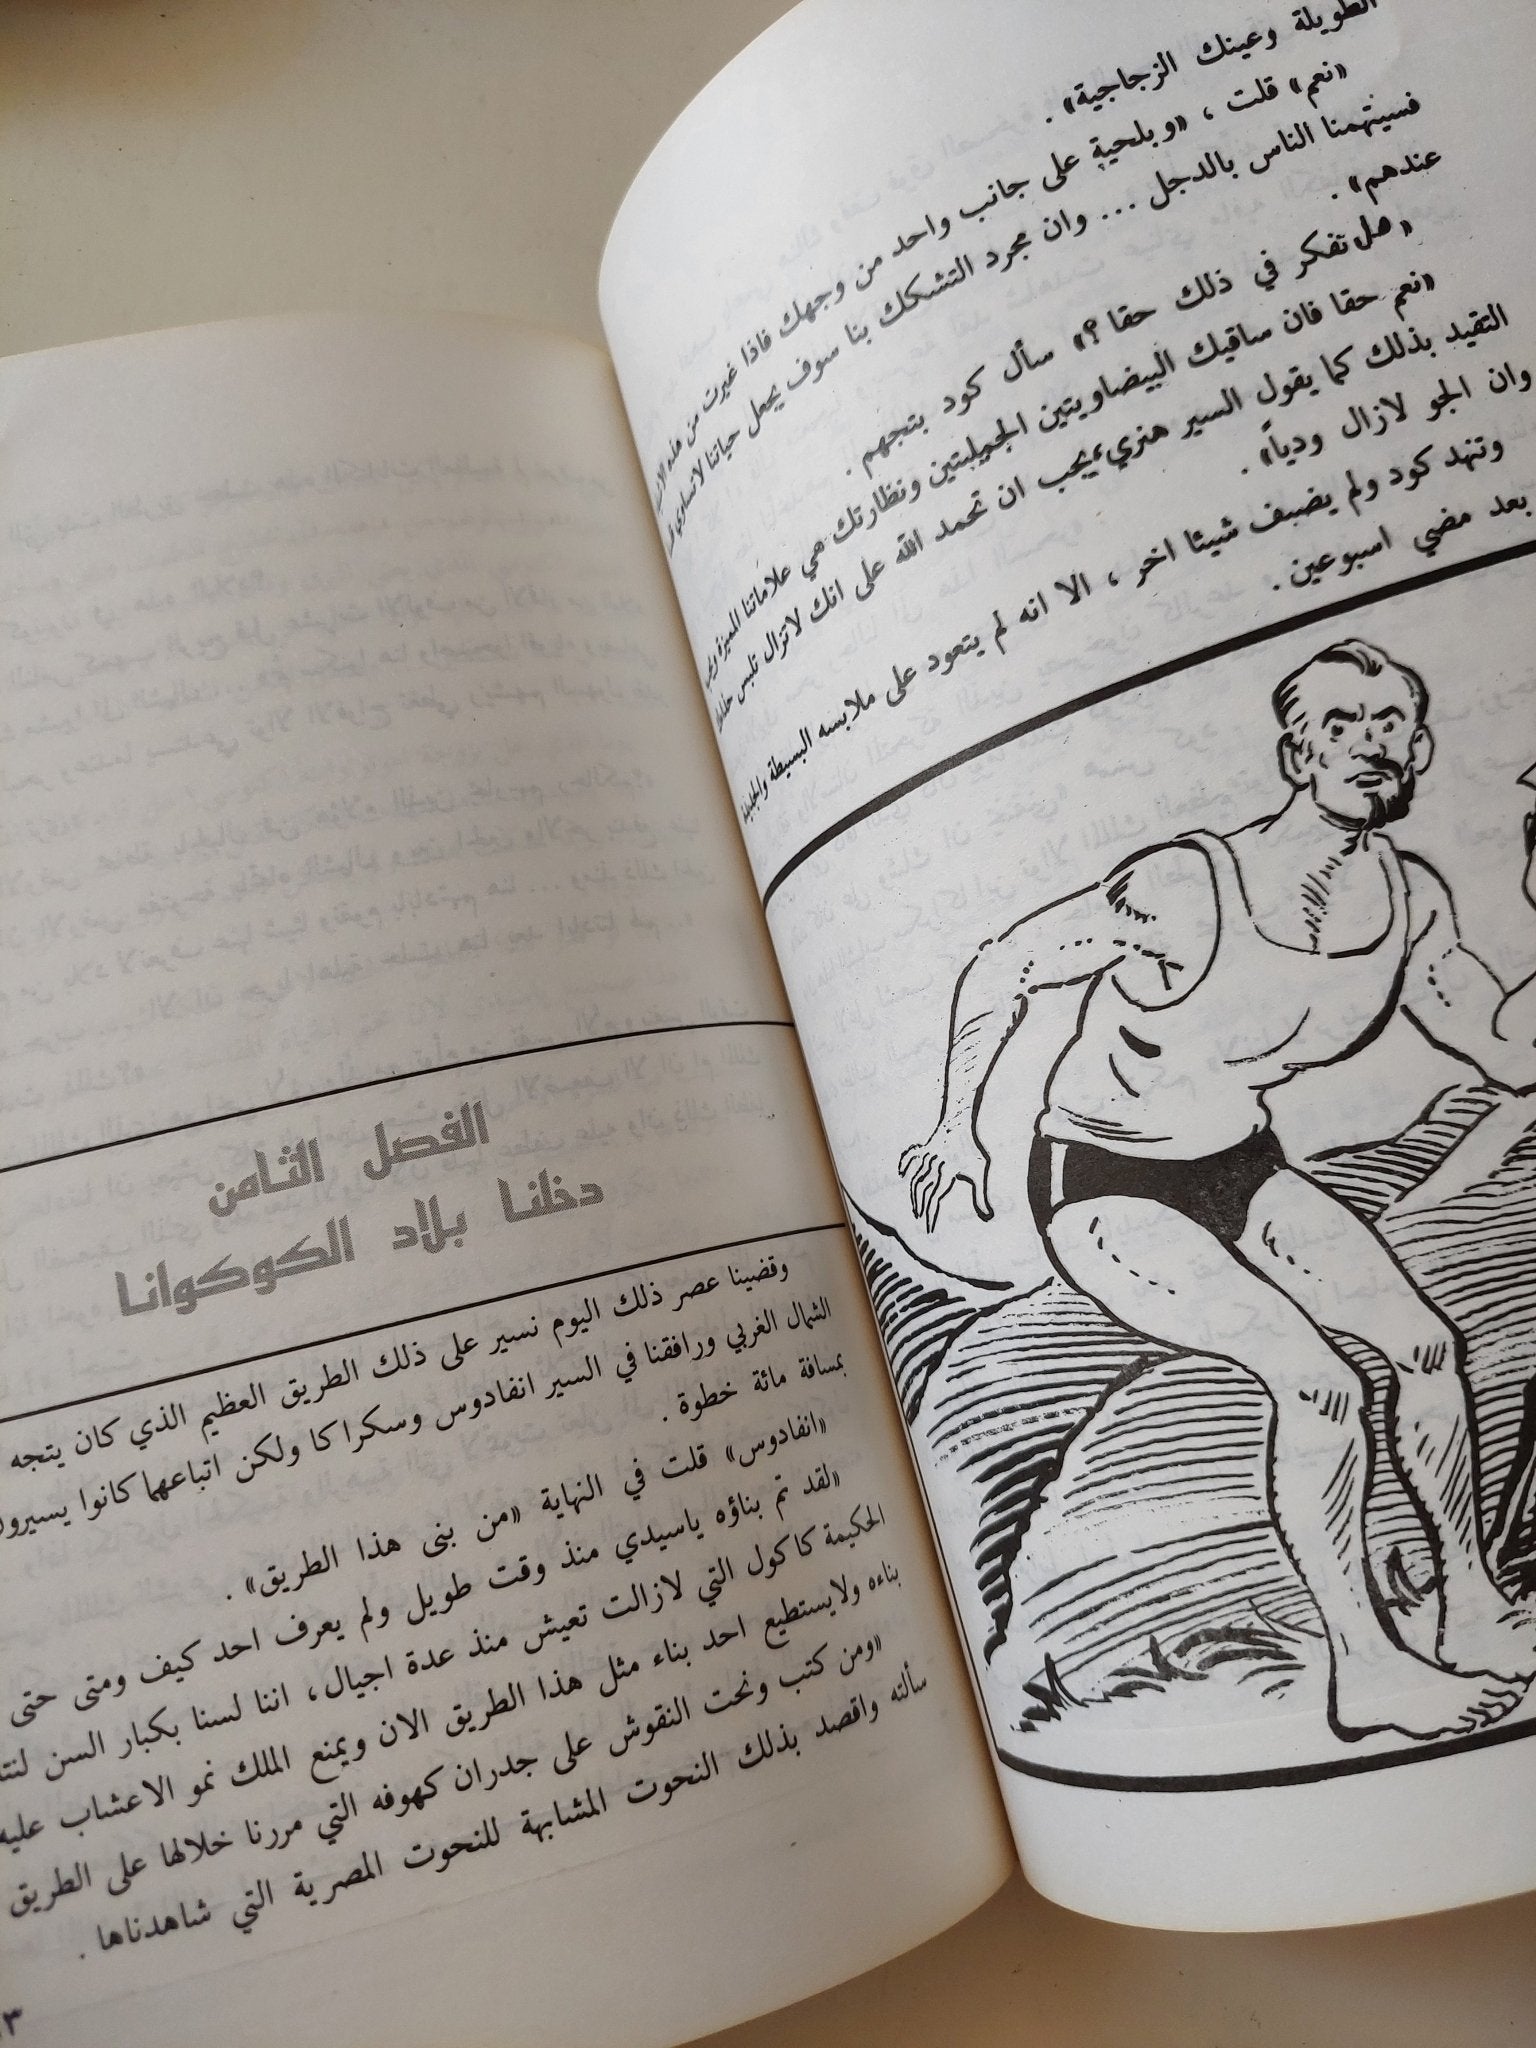 الطويلة وعينك الزجاجية» .
«نعم» قلت ، «وبلحية على جانب واحد من وجهك فاذا غيرت من هذه
فسيتهمنا الناس بالدجل ... وان مجرد التشكك بنا سوف يجعل حياتنا لاتساوي
عندهم» .
«هل تفكر في ذلك حقا ؟» سأل كود بتجهم .
«نعم حقا فان ساقيك البيضاويتين الجميلتين ونظارتك هي علاماتنا المميزة
التقيد بذلك كما يقول السير هنري، يجب ان تحمد الله على انك لاتزال تلبس
وان الجو لازال ودياً» .
وتنهد كود ولم يضيف شيئا اخر ، الا انه لم يتعود على ملابسه البسيطة والخفيفة
بعد مضي اسبوعين .
الفصل الثامن
دخلنا بلاد الكوكوانا
وقضينا عصر ذلك اليوم نسير على ذلك الطريق العظيم الذي كان يتجه
الشمال الغربي ورافقنا في السير انفادوس وسكراكا ولكن اتباعهما كانوا يسيرون
بمسافة مائة خطوة .
«انفادوس» قلت في النهاية «من بنى هذا الطريق» .
«لقد تم بناؤه ياسيدي منذ وقت طويل ولم يعرف احد كيف ومتى حتى
الحكيمة كاكول التي لازالت تعيش منذ عدة اجيال، اننا لسنا بكبار السن
بناءه ولايستطيع احد بناء مثل هذا الطريق الان ويمنع الملك نمو الاعشاب عليه
«ومن كتب ونحت النقوش على جدران كهوفه التي مررنا خلالها على الطريق
سألته واقصد بذلك النحوت المشابهة للنحوت المصرية التي شاهدناها .